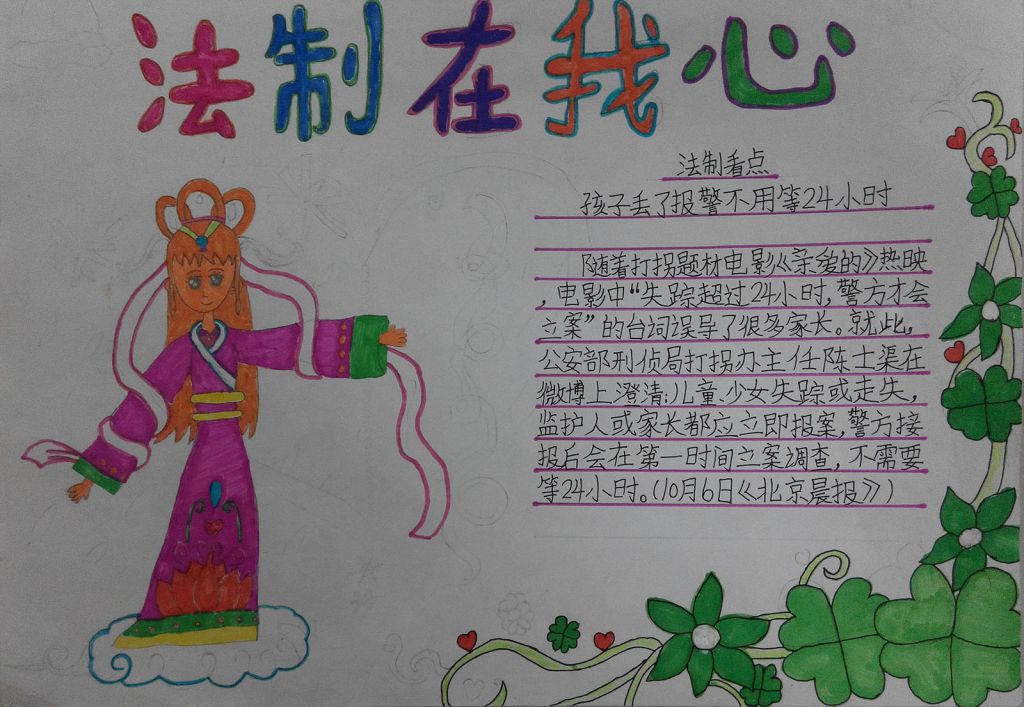 法制在我心
法制看点
孩子丢了报警不用等24小时
随着打拐题材电影《亲爱的》热映
，电影中“失踪超过24小时，警方才会
立案”的台词误导了很多家长。就此，
公安部刑侦局打拐办主任陈士渠在
微博上澄清：儿童、少女失踪或走失，
监护人或家长都应立即报案，警方接
报后会在第一时间立案调查，不需要
等24小时。（10月6日《北京晨报》）